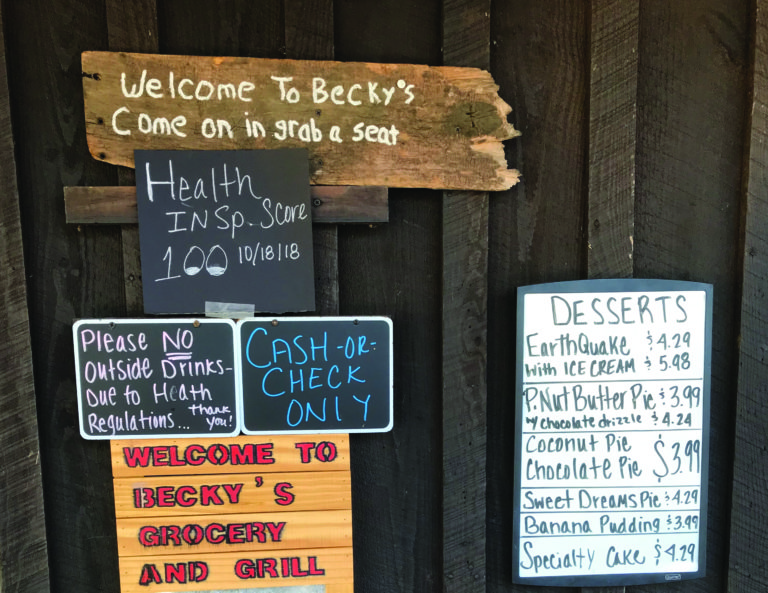 Welcome To Becky's
Come on in grab a seat
Health
INSp. Score
100 10/18/18
Please NO
Outside Drinks-
Due to Heath
Regulations... Thank you!
CASH-OR-
CHECK
ONLY
WELCOME TO
BECKY'S
GROCERY
AND GRILL
DESSERTS
EarthQuake $4.29
With ICE CREAM $5.98
P.Nut Butter Pie $3.99
w/ chocolate drizzle $4.24
Coconut Pie
Chocolate Pie $3.99
Sweet Dreams Pie $4.29
Banana Pudding $3.99
Specialty Cake $4.29